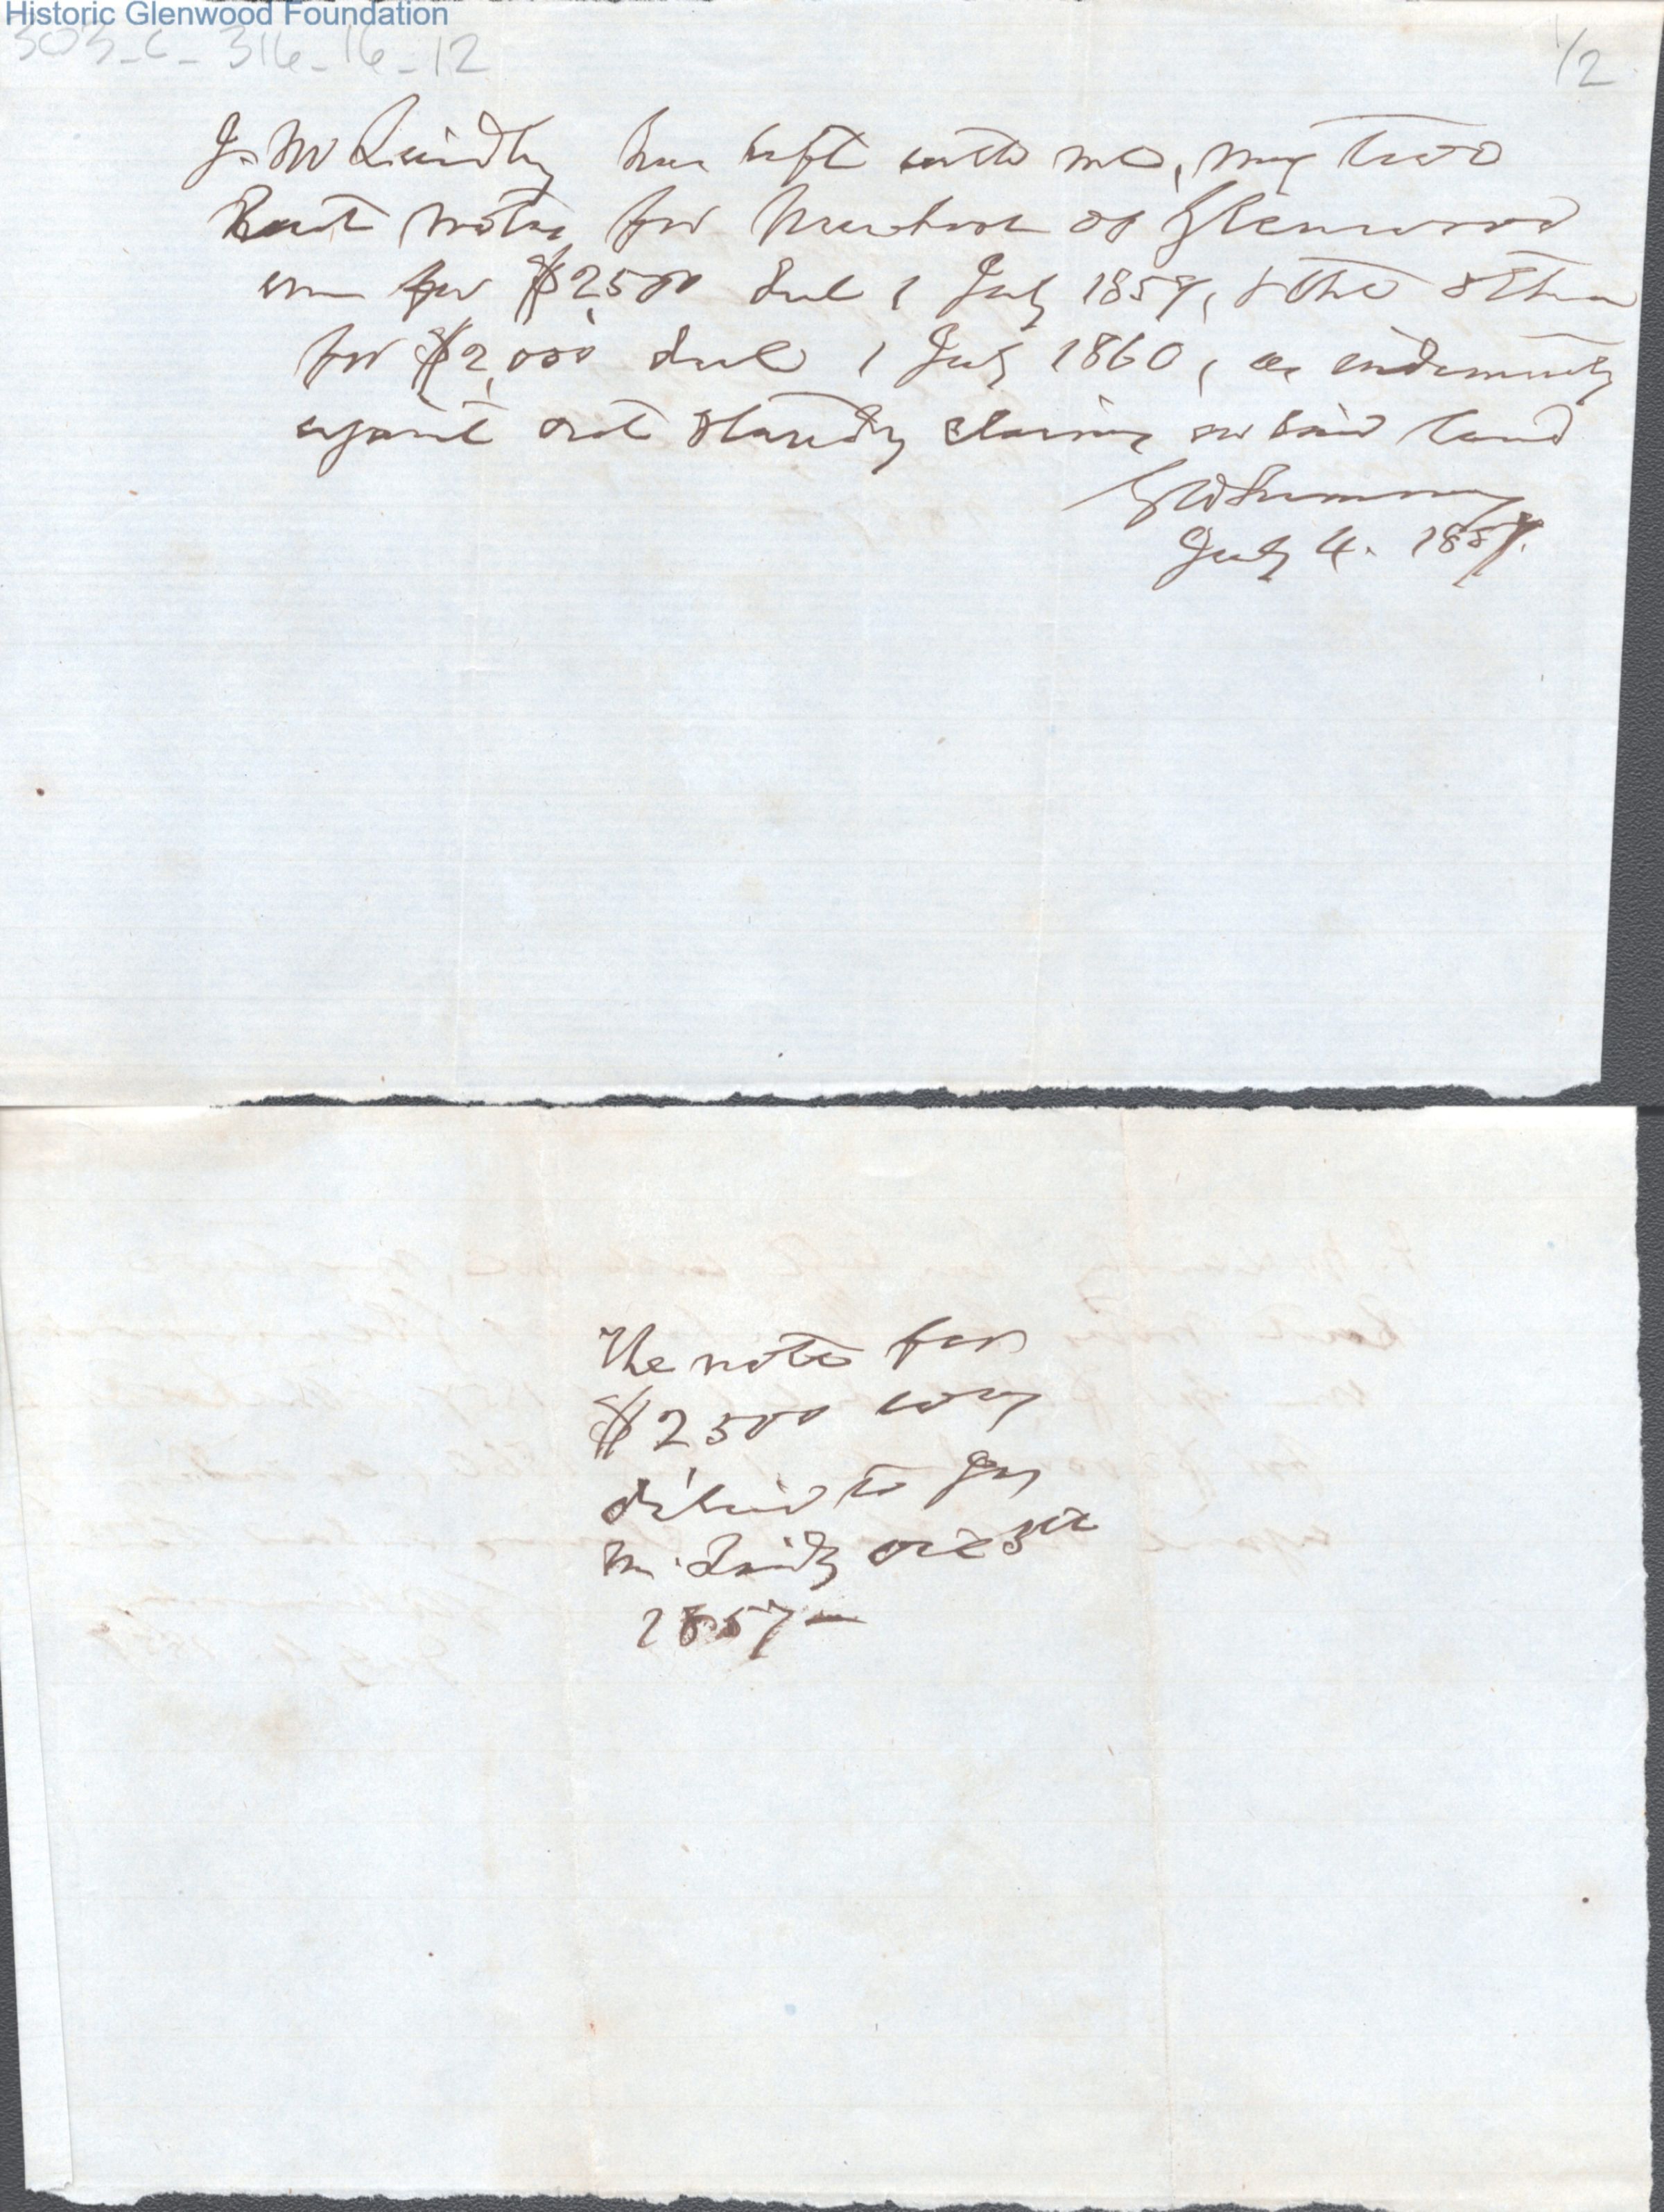 Historic Glenwood Foundation
303-C-316-16-12
1/2
J. M Laidley has left with me, my two
last notes for purchase of Glenwood
one for $2,500 due 1 July 1859, & the other
for $2,000 due 1 July 1860, as indemnity
against out standing claims on said land
G W Summers
July 4. 1857.
The note for
$2500 was
to Jas
M. Laidley Oct 3rd
1857 —